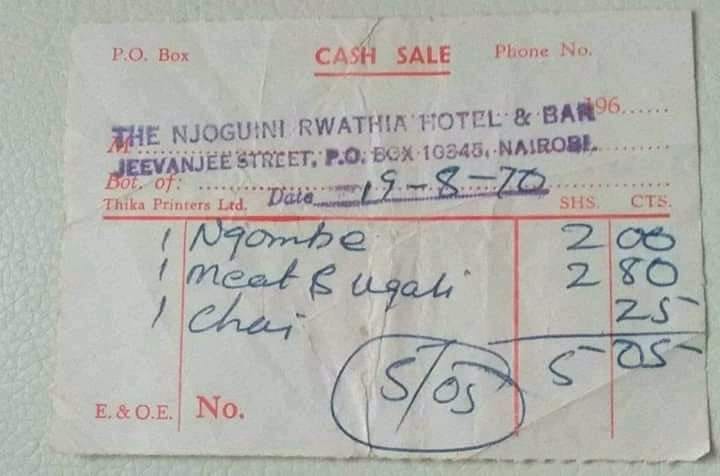 P.O. Box CASH SALE Phone No.
196......
THE NJOGUINI RWATHIA HOTEL & BAR
M
JEEVANJEE STREET, P.O. BOX 10345, NAIROBI.
Bot. of:
Thika Printers Ltd. Date 19-8-70 SHS. CTS.
1 Ngombe 2 00
1 Meat & ugali 2 80
1 Chai 25
5/05 5 05
E. & O.E. No.